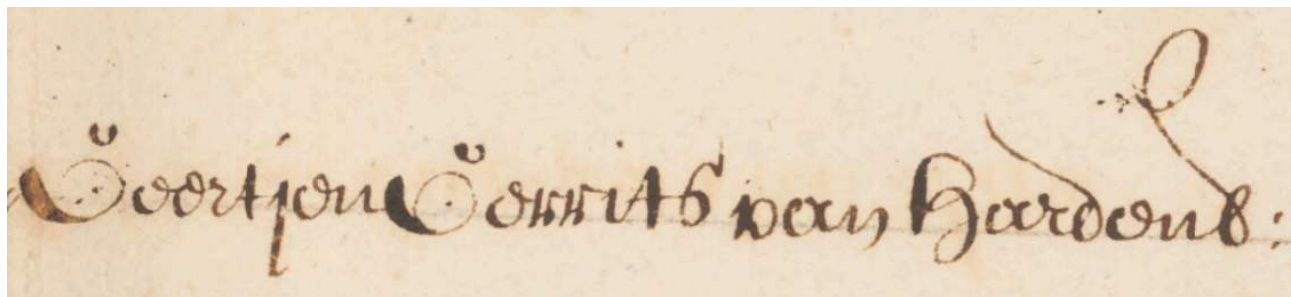 Geertjen Gerrits van Hardenb: